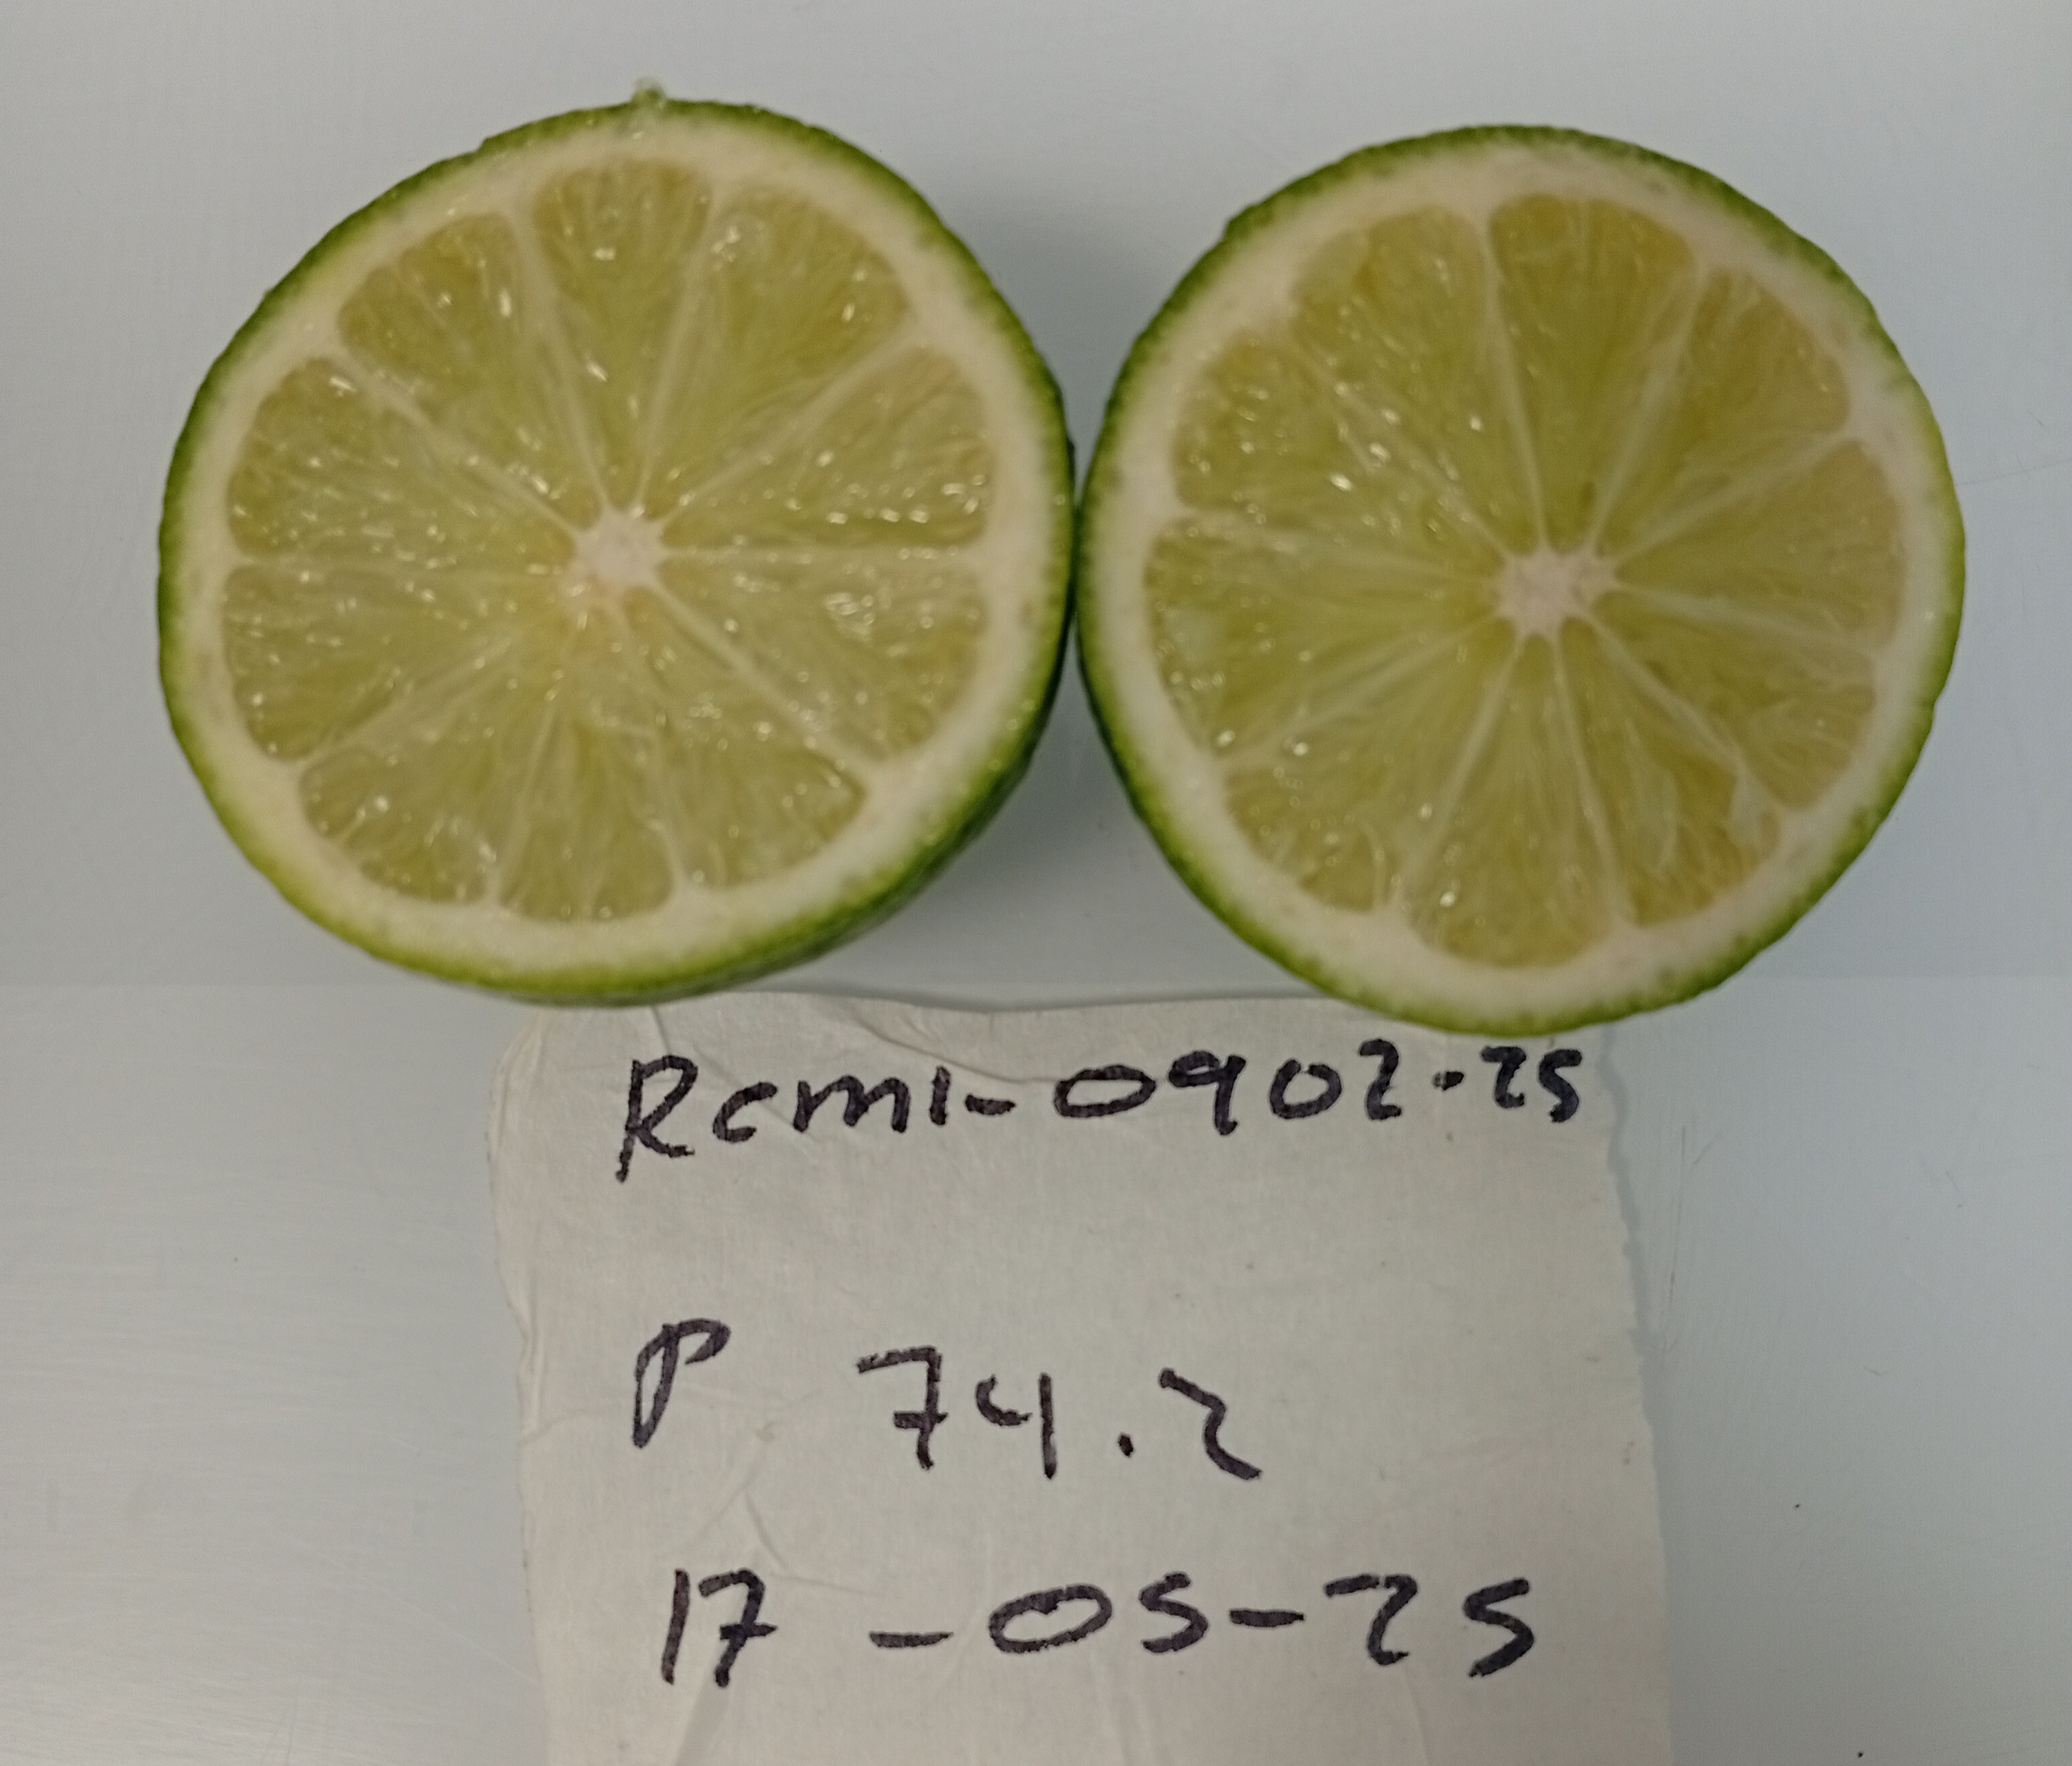 Rcml-0902-25
P 74.2
17-05-25